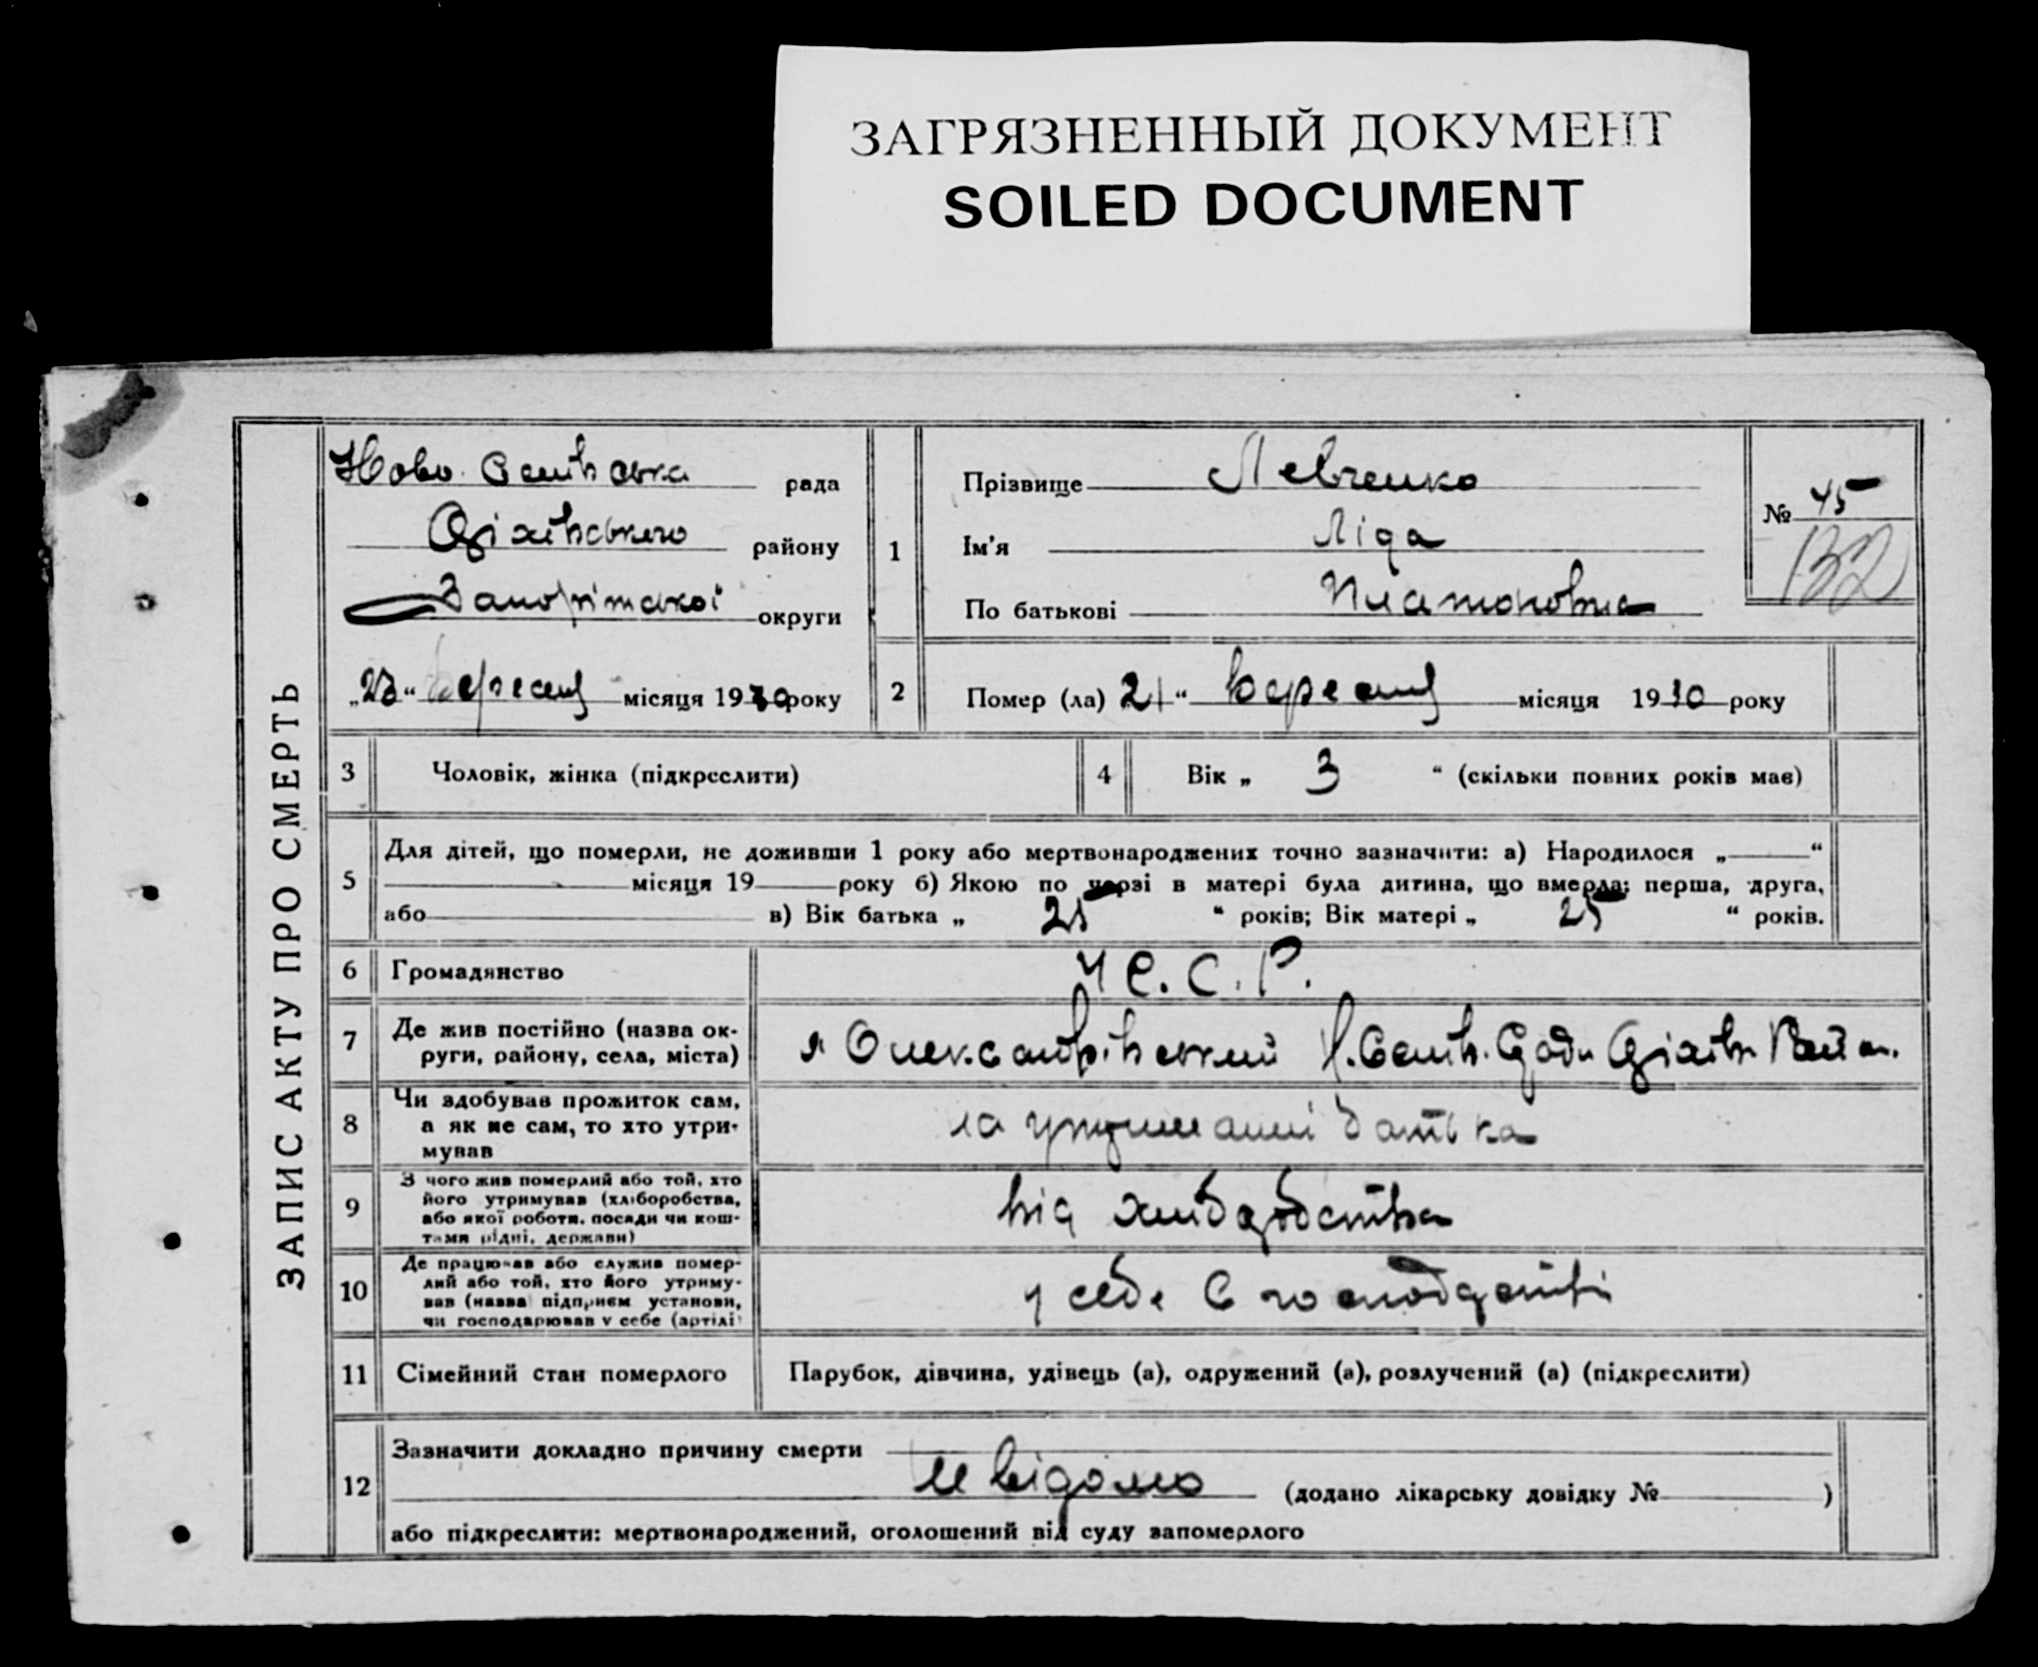 ЗАГРЯЗНЕННЫЙ ДОКУМЕНТ
SOILED DOCUMENT
ЗАПИС АКТУ ПРО СМЕРТЬ
Ново рада
району
округи
„23“ вересня місяця 1930 року
1
Прізвище Левченко
Ім'я Ліда
По батькові Платоновна
№ 45
132
2
Помер (ла) 21“ вересня місяця 1930 року
3
Чоловік, жінка (підкреслити)
4
Вік „ 3 “ (скільки повних років має)
5
Для дітей, що померли, не доживши 1 року або мертвонароджених точно зазначити: а) Народилося „ “
місяця 19 року б) Якою по черзі в матері була дитина, що вмерла: перша, друга,
або в) Вік батька „ “ років; Вік матері „ 25 “ років.
6
Громадянство
У С.С.Р.
7
Де жив постійно (назва ок-
руги, району, села, міста)
8
Чи здобував прожиток сам,
а як не сам, то хто утри-
мував
на утриманні батька
9
З чого жив померлий або той, хто
його утримував (хліборобства,
або якої роботи, посади чи кош-
тами рідні, держави)
від хліборобства
10
Де працював або служив помер-
лий або той, хто його утриму-
вав (назва підприєм установи,
чи господарював у себе (артілі
у себе в
11
Сімейний стан померлого
Парубок, дівчина, удівець (а), одружений (а), розлучений (а) (підкреслити)
12
Зазначити докладно причину смерти
невідомо (додано лікарську довідку № )
або підкреслити: мертвонароджений, оголошений від суду запомерлого